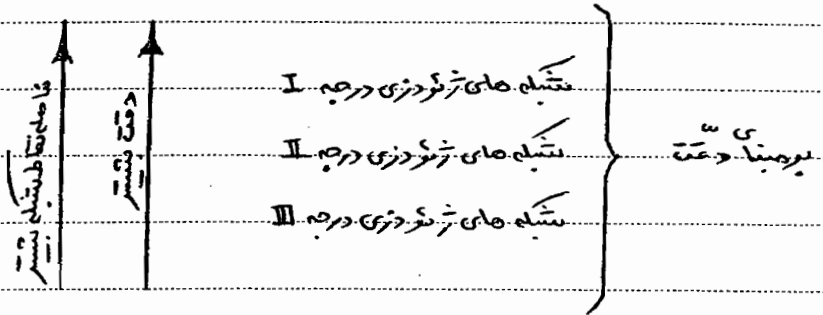 بر مبنای دقت
شبکه های ژئودزی درجه I
شبکه های ژئودزی درجه II
شبکه های ژئودزی درجه III
دقت بیشتر
فاصله نقاط شبکه بیشتر